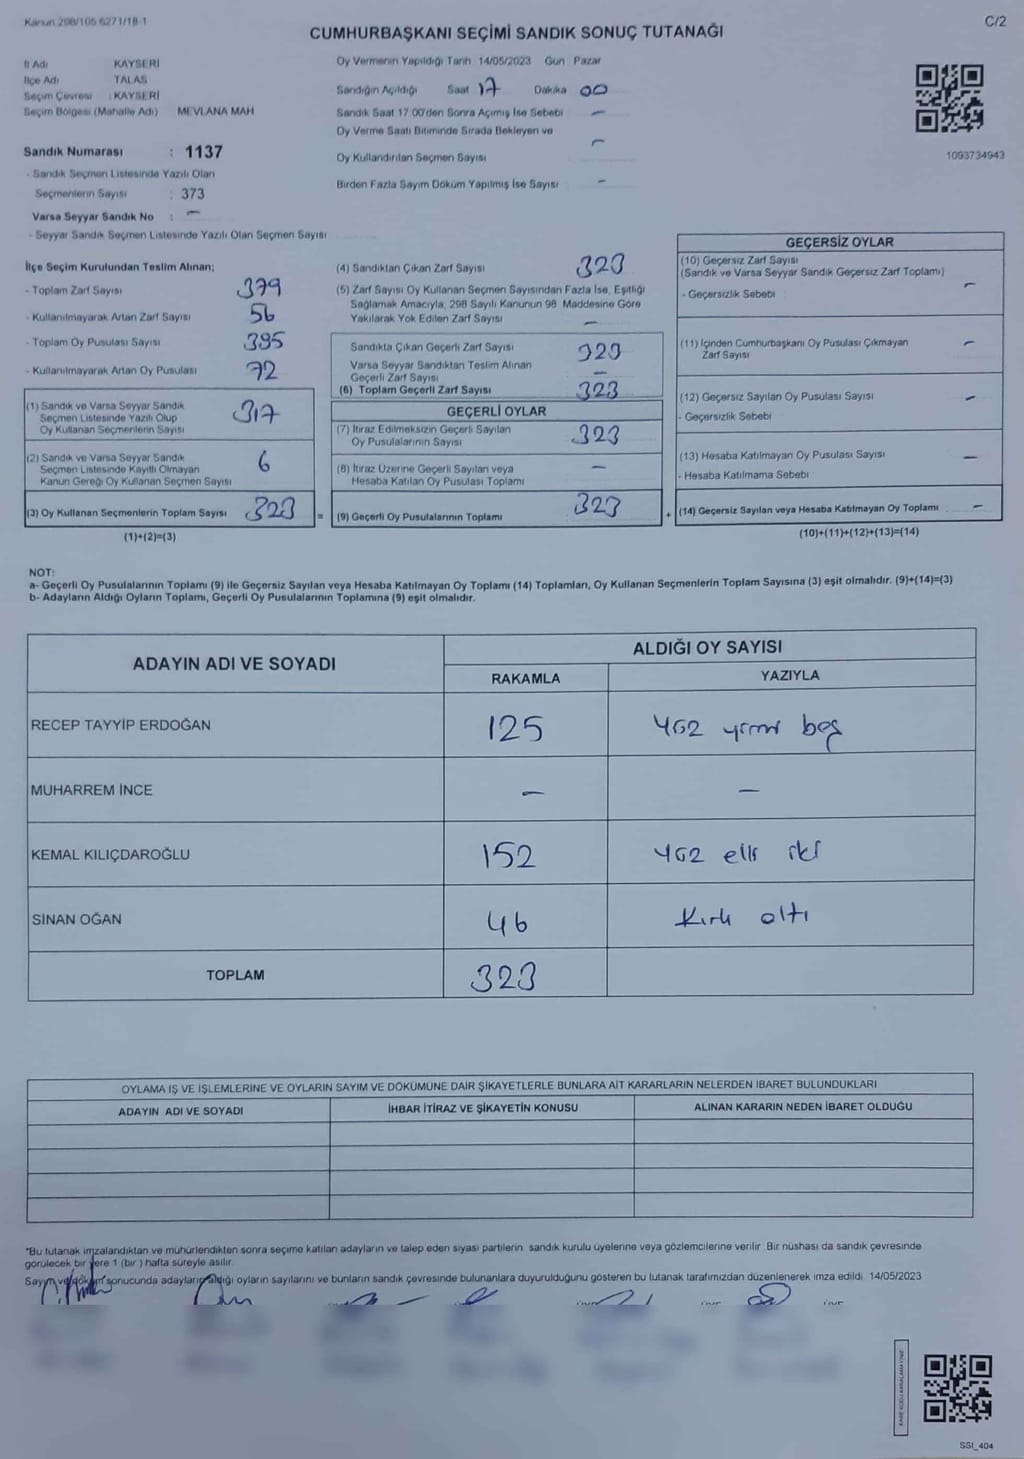 Kanun 298/105 6271/18-1
C/2
CUMHURBAŞKANI SEÇİMİ SANDIK SONUÇ TUTANAĞI
İl Adı : KAYSERİ
İlçe Adı : TALAS
Seçim Çevresi : KAYSERİ
Seçim Bölgesi (Mahalle Adı) MEVLANA MAH
Sandık Numarası : 1137
- Sandık Seçmen Listesinde Yazılı Olan
Seçmenlerin Sayısı : 373
Varsa Seyyar Sandık No : -
- Seyyar Sandık Seçmen Listesinde Yazılı Olan Seçmen Sayısı
Oy Vermenin Yapıldığı Tarih 14/05/2023 Gün Pazar
Sandığın Açıldığı Saat 17 Dakika 00
Sandık Saat 17:00'den Sonra Açımış İse Sebebi -
Oy Verme Saati Bitiminde Sırada Bekleyen ve
Oy Kullandırılan Seçmen Sayısı -
Birden Fazla Sayım Döküm Yapılmış İse Sayısı -
1093734943
İlçe Seçim Kurulundan Teslim Alınan;
- Toplam Zarf Sayısı 379
- Kullanılmayarak Artan Zarf Sayısı 56
- Toplam Oy Pusulası Sayısı 395
- Kullanılmayarak Artan Oy Pusulası 72
(1) Sandık ve Varsa Seyyar Sandık
Seçmen Listesinde Yazılı Olup
Oy Kullanan Seçmenlerin Sayısı 317
(2) Sandık ve Varsa Seyyar Sandık
Seçmen Listesinde Kayıtlı Olmayan
Kanun Gereği Oy Kullanan Seçmen Sayısı 6
(3) Oy Kullanan Seçmenlerin Toplam Sayısı 323 =
(1)+(2)=(3)
(4) Sandıktan Çıkan Zarf Sayısı 323
(5) Zarf Sayısı Oy Kullanan Seçmen Sayısından Fazla İse, Eşitliği
Sağlamak Amacıyla, 298 Sayılı Kanunun 98. Maddesine Göre
Yakılarak Yok Edilen Zarf Sayısı -
Sandıkta Çıkan Geçerli Zarf Sayısı 323
Varsa Seyyar Sandıktan Teslim Alınan
Geçerli Zarf Sayısı -
(6) Toplam Geçerli Zarf Sayısı 323
GEÇERLİ OYLAR
(7) İtiraz Edilmeksizin Geçerli Sayılan
Oy Pusulalarının Sayısı 323
(8) İtiraz Üzerine Geçerli Sayılan veya
Hesaba Katılan Oy Pusulası Toplamı -
(9) Geçerli Oy Pusulalarının Toplamı 323 +
GEÇERSİZ OYLAR
(10) Geçersiz Zarf Sayısı
(Sandık ve Varsa Seyyar Sandık Geçersiz Zarf Toplamı) -
- Geçersizlik Sebebi
(11) İçinden Cumhurbaşkanı Oy Pusulası Çıkmayan
Zarf Sayısı -
(12) Geçersiz Sayılan Oy Pusulası Sayısı -
- Geçersizlik Sebebi
(13) Hesaba Katılmayan Oy Pusulası Sayısı -
- Hesaba Katılmama Sebebi
(14) Geçersiz Sayılan veya Hesaba Katılmayan Oy Toplamı -
(10)+(11)+(12)+(13)=(14)
NOT:
a- Geçerli Oy Pusulalarının Toplamı (9) ile Geçersiz Sayılan veya Hesaba Katılmayan Oy Toplamı (14) Toplamları, Oy Kullanan Seçmenlerin Toplam Sayısına (3) eşit olmalıdır. (9)+(14)=(3)
b- Adayların Aldığı Oyların Toplamı, Geçerli Oy Pusulalarının Toplamına (9) eşit olmalıdır.
ADAYIN ADI VE SOYADI ALDIĞI OY SAYISI
RAKAMLA YAZIYLA
RECEP TAYYİP ERDOĞAN 125 yüz yirmi beş
MUHARREM İNCE - -
KEMAL KILIÇDAROĞLU 152 yüz elli iki
SİNAN OĞAN 46 kırk altı
TOPLAM 323
OYLAMA İŞ VE İŞLEMLERİNE VE OYLARIN SAYIM VE DÖKÜMÜNE DAİR ŞİKAYETLERLE BUNLARA AİT KARARLARIN NELERDEN İBARET BULUNDUKLARI
ADAYIN ADI VE SOYADI İHBAR İTİRAZ VE ŞİKAYETİN KONUSU ALINAN KARARIN NEDEN İBARET OLDUĞU
*Bu tutanak imzalandıktan ve mühürlendikten sonra seçime katılan adayların ve talep eden siyasi partilerin sandık kurulu üyelerine veya gözlemcilerine verilir. Bir nüshası da sandık çevresinde
görülecek bir yere 1 (bir) hafta süreyle asılır.
Sayım ve döküm sonucunda adayların aldığı oyların sayılarını ve bunların sandık çevresinde bulunanlara duyurulduğunu gösteren bu tutanak tarafımızdan düzenlenerek imza edildi. 14/05/2023
SSI_404